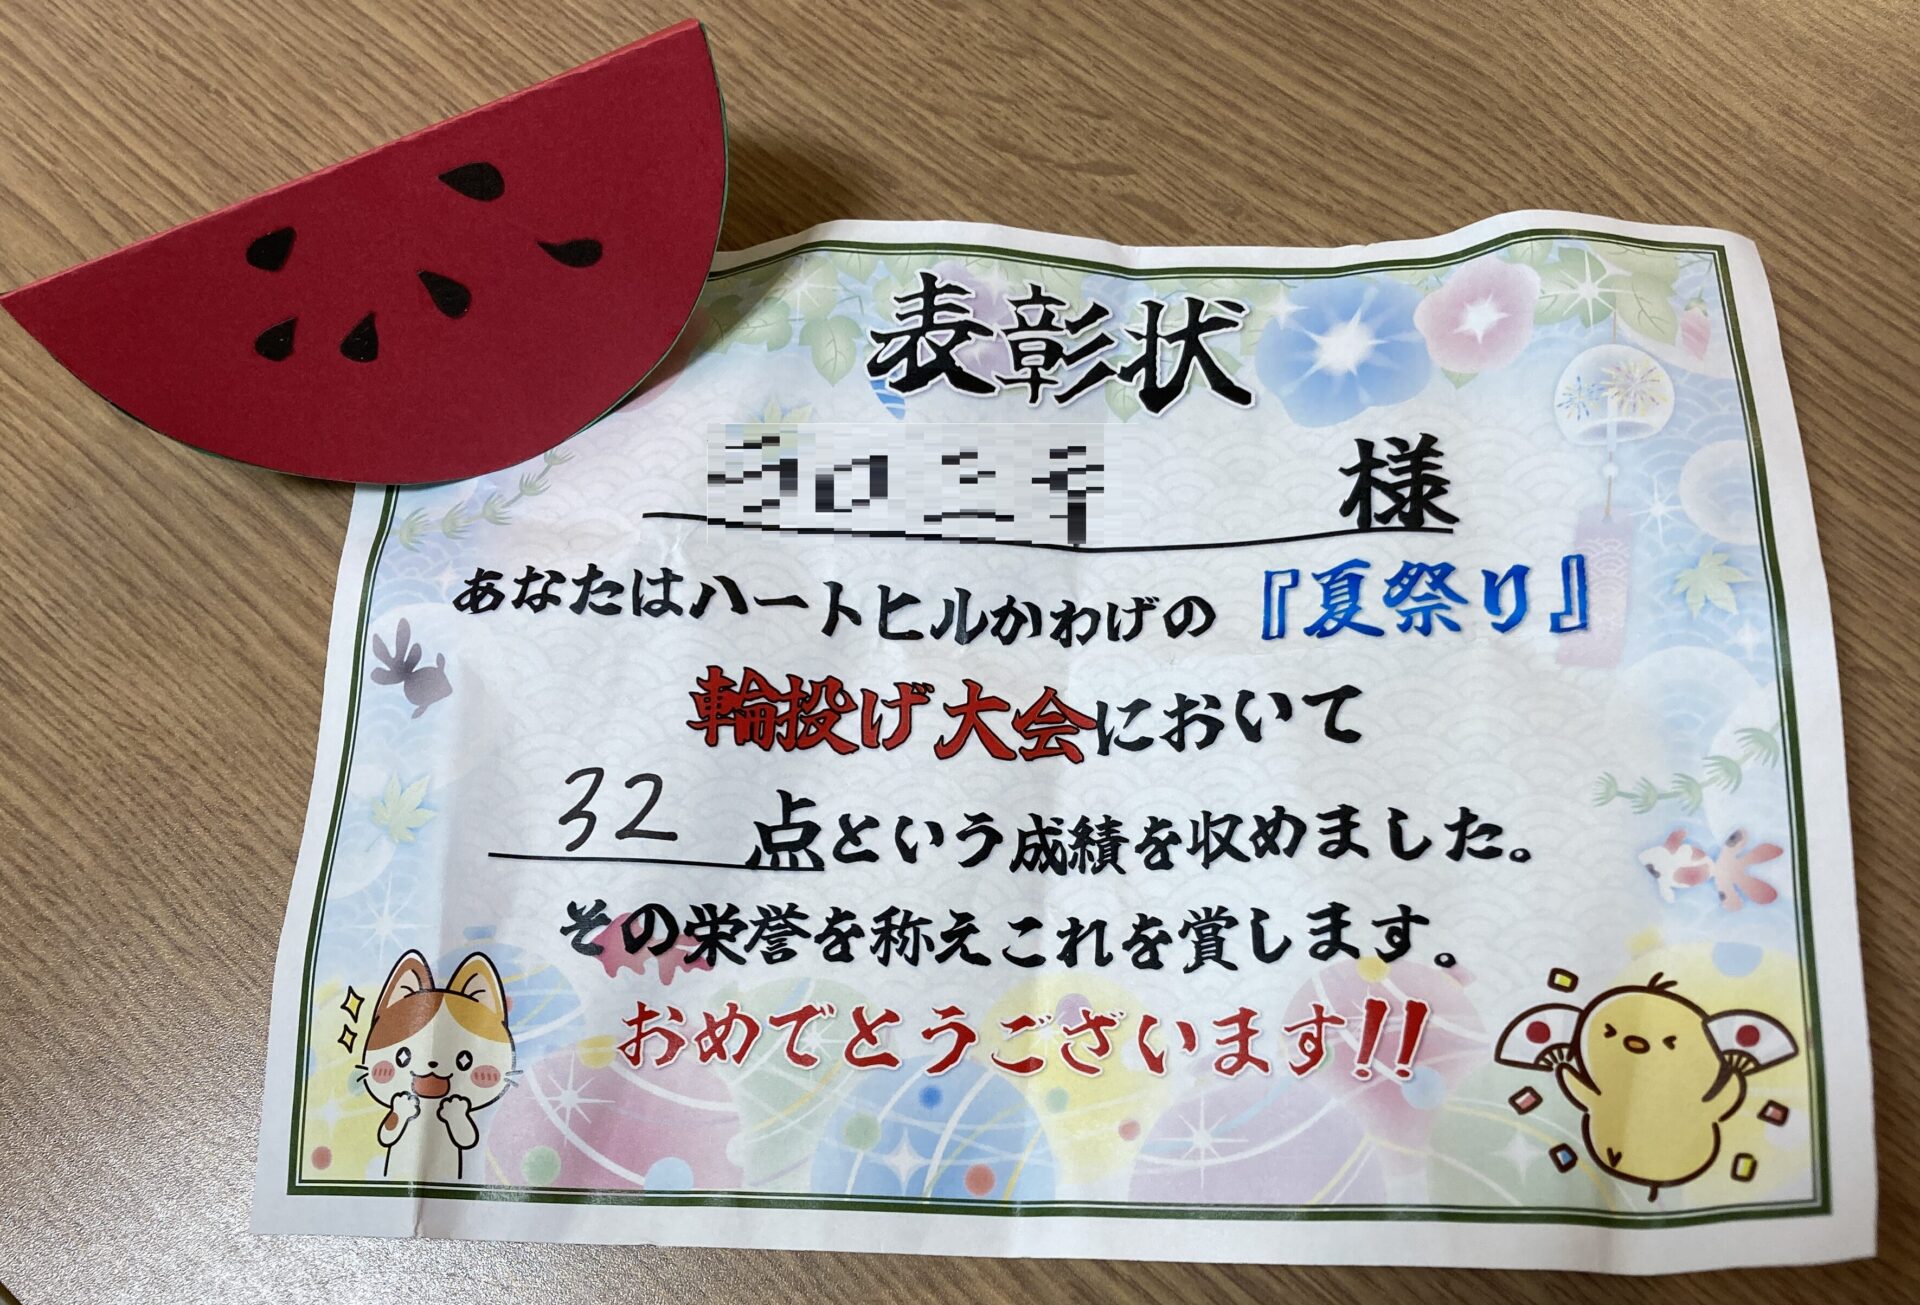 表彰状
様
あなたはハートヒルかわげの『夏祭り』
輪投げ大会において
32点という成績を収めました。
その栄誉を称えこれを賞します。
おめでとうございます!!